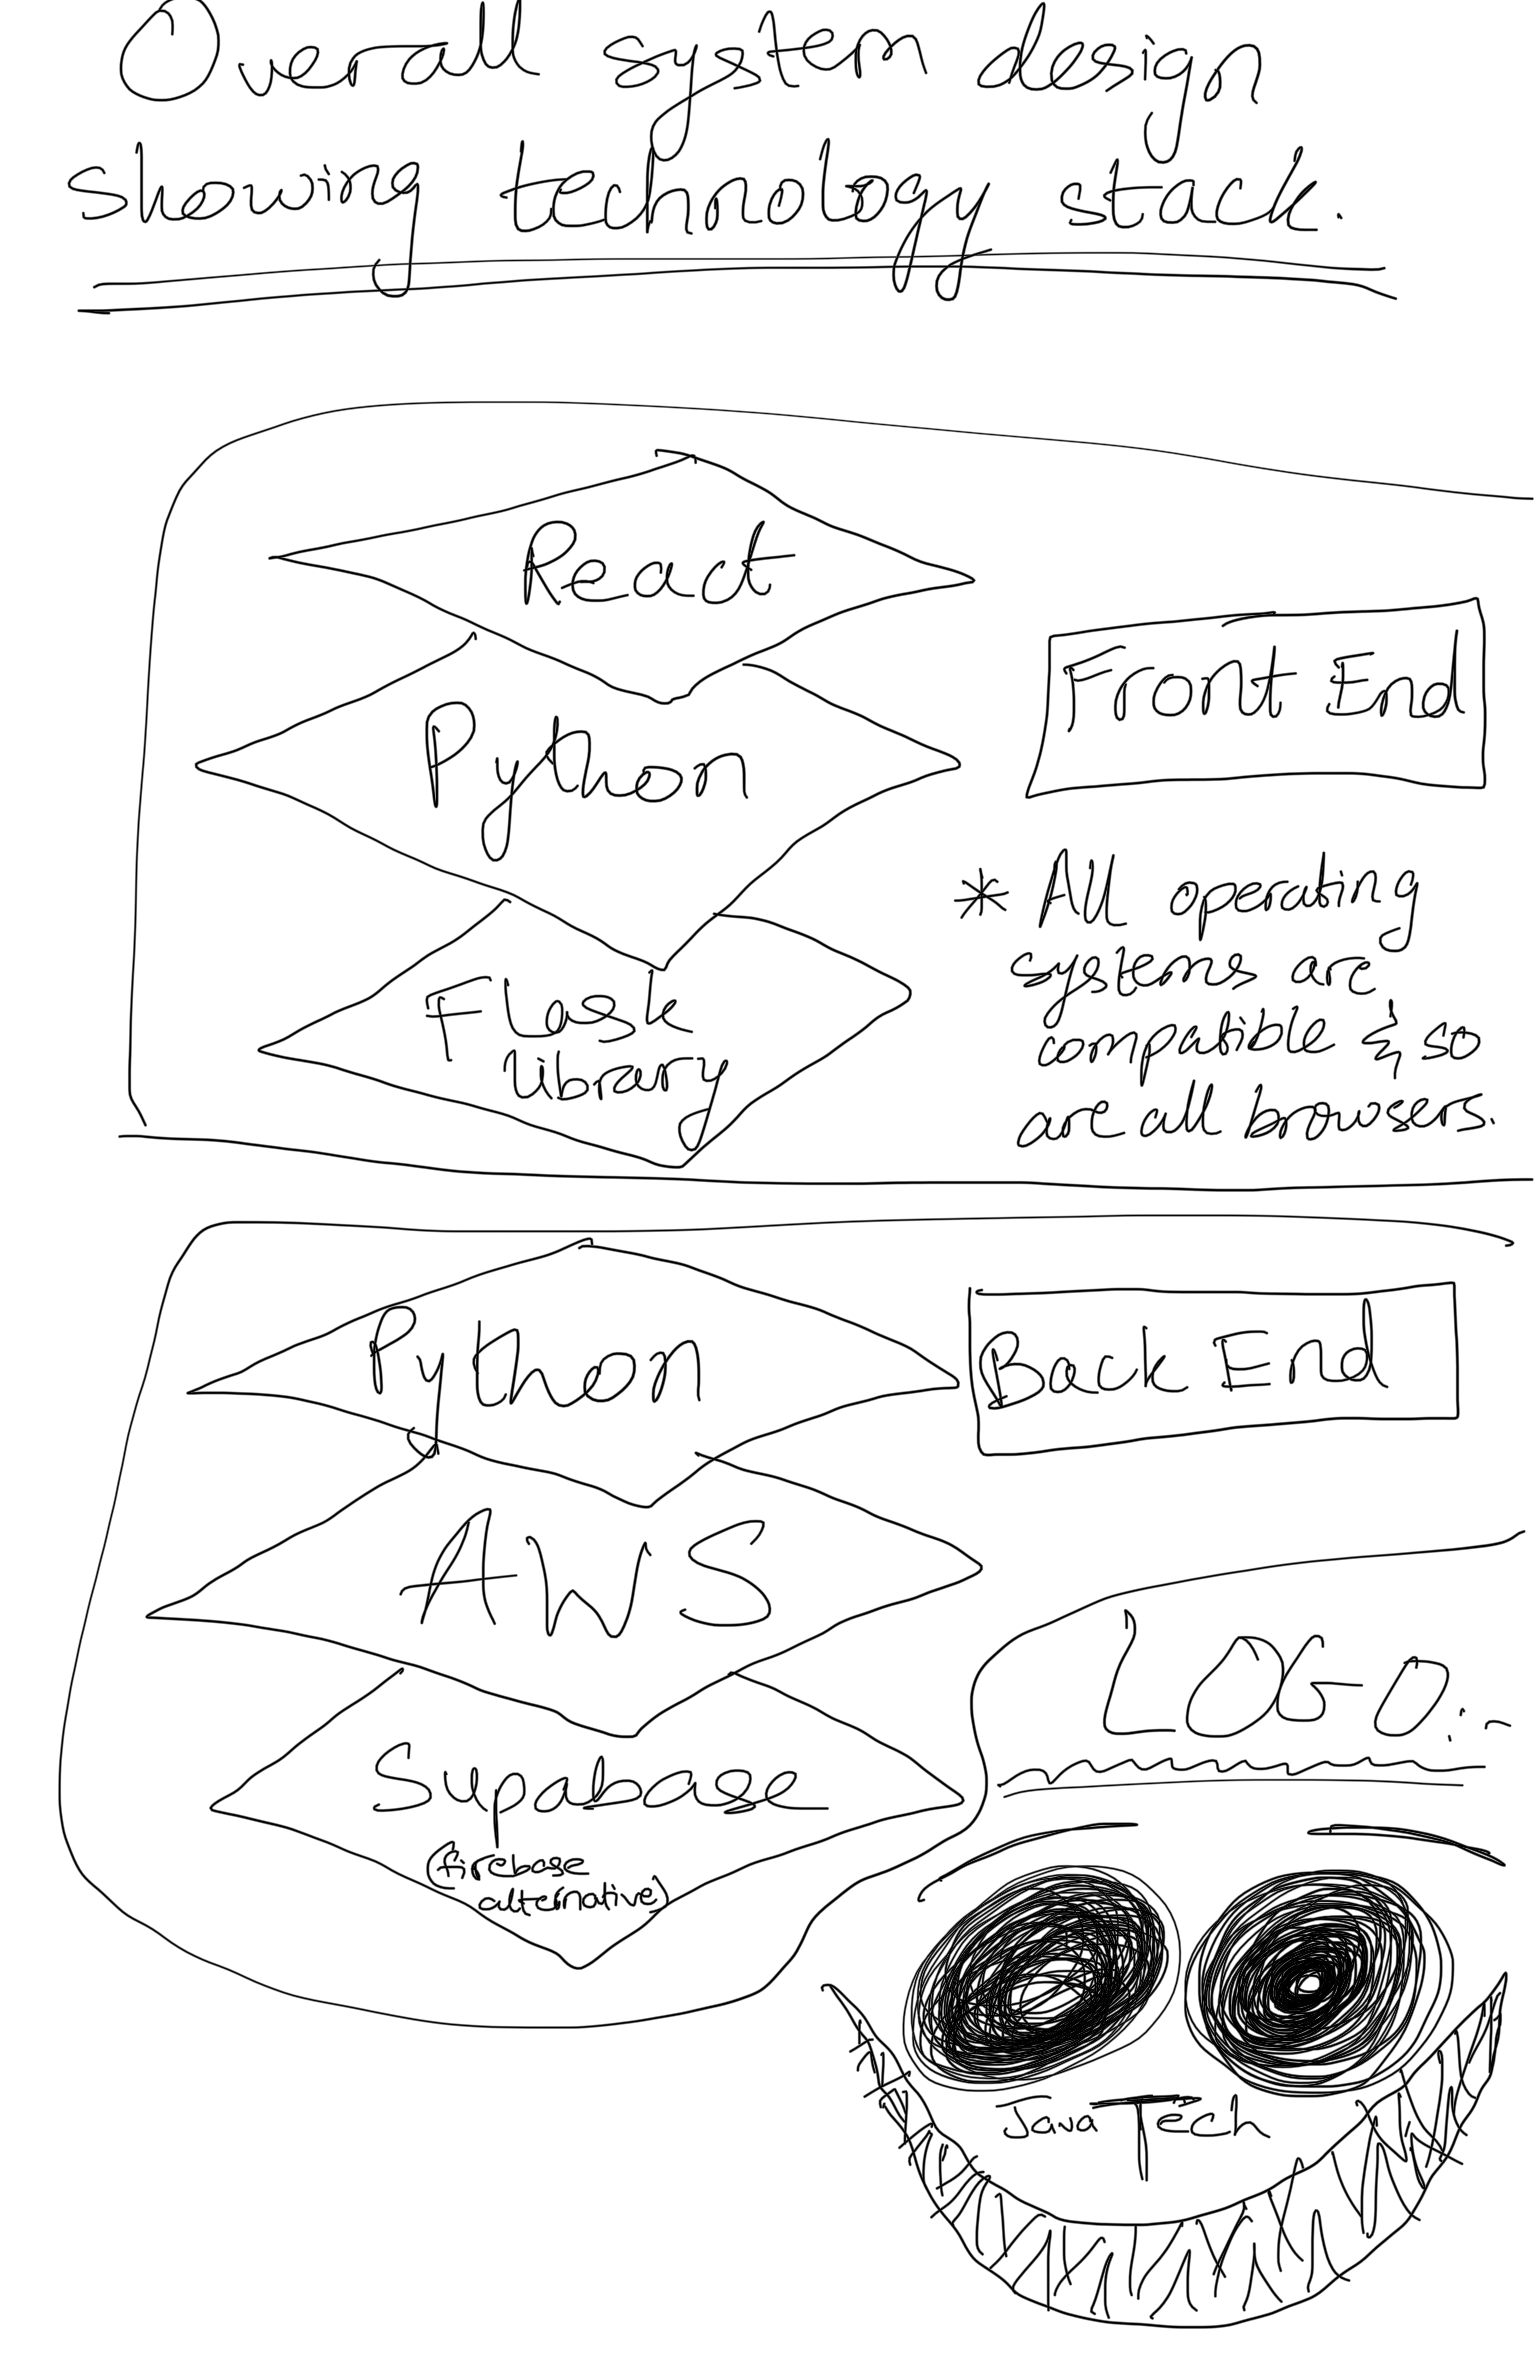 Overall system design
showing technology stack.
React
Python
Flask
library
Front End
* All operating
systems are
compatible & so
are all browsers.
Python
AWS
Supabase
(firebase
alternative)
Back End
LOGO:-
Java Tech